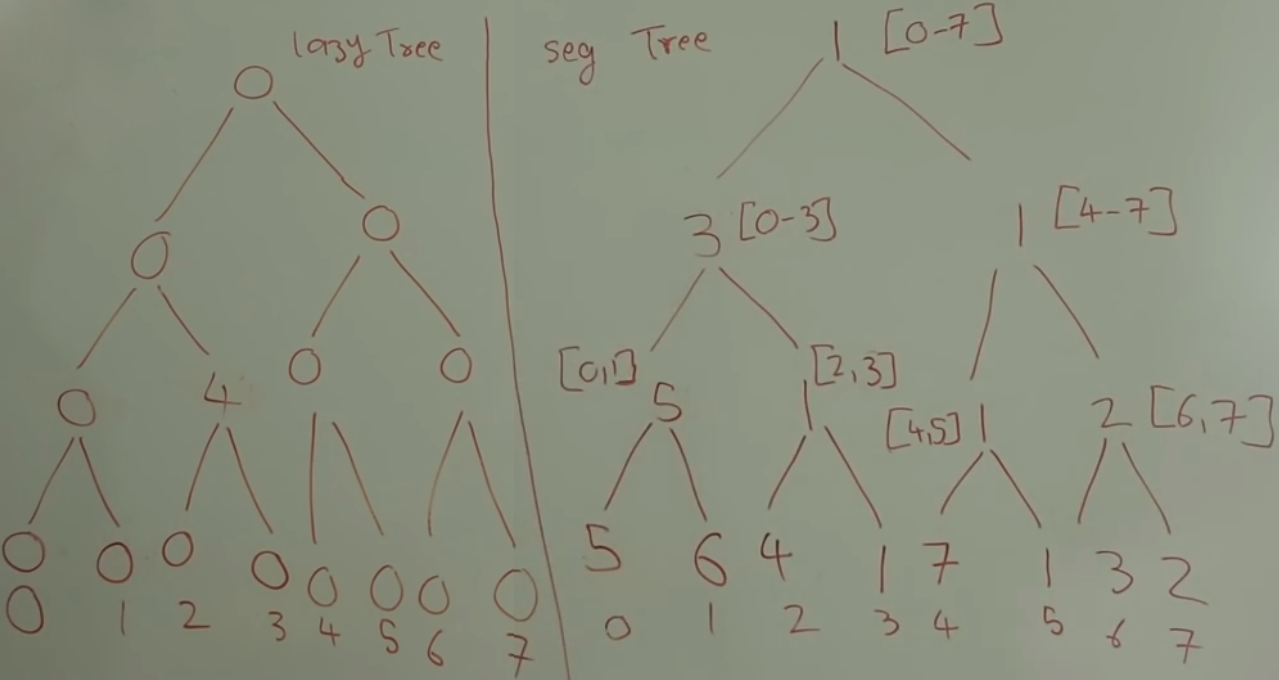 lazy Tree
0
0 0
0 4 0 0
0 0 0 0 0 0 0 0
0 1 2 3 4 5 6 7
seg Tree
1 [0-7]
3 [0-3] 1 [4-7]
[0,1] 5 1 [2,3] [4,5] 1 2 [6,7]
5 6 4 1 7 1 3 2
0 1 2 3 4 5 6 7